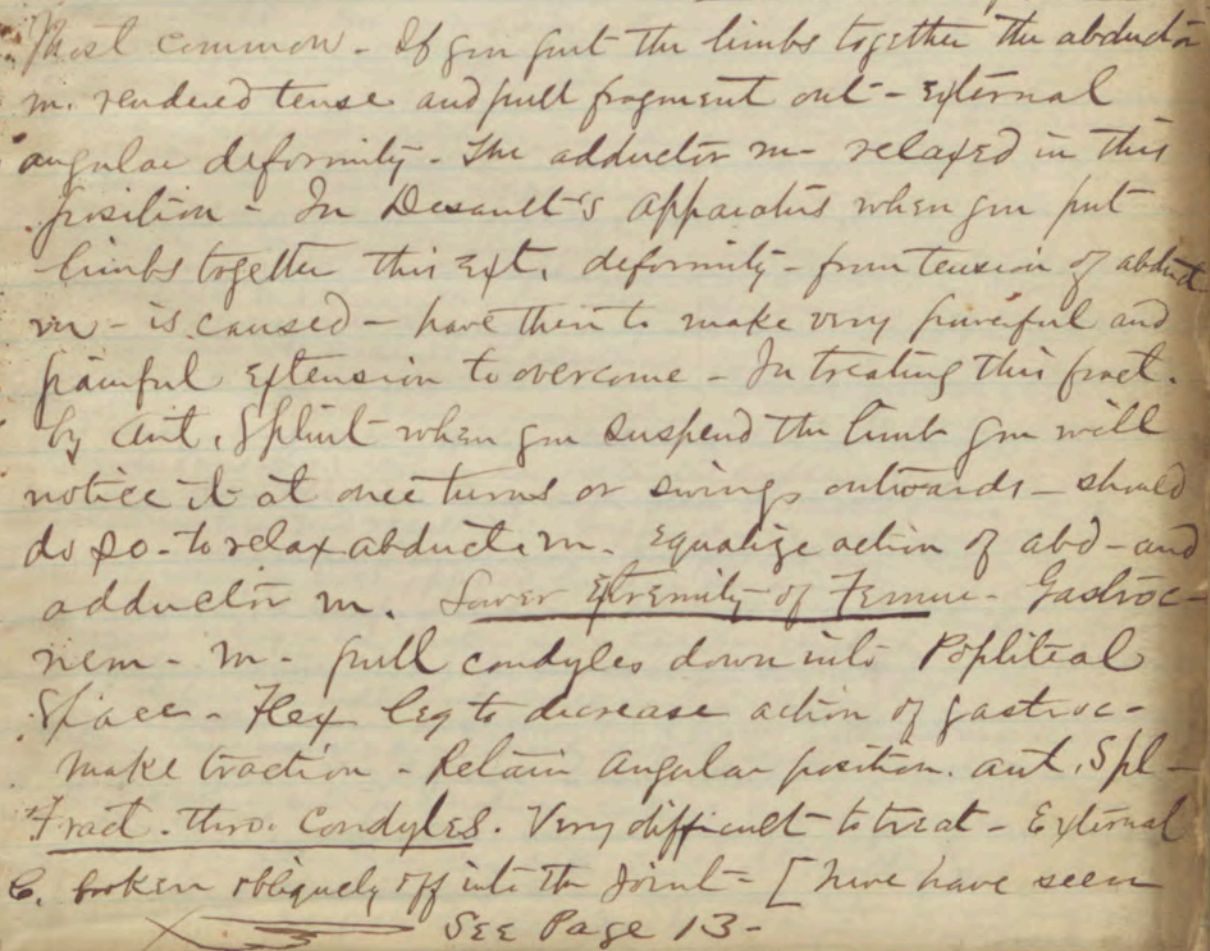 Most common - If you put the limbs together the abductor
m. rendered tense and pull fragment out - External
angular deformity - The adductor m - relaxed in this
position - In Desault's apparatus when you put
limbs together this ext. deformity - from tension of abduct
m - is caused - have then to make very powerful and
painful extension to overcome - In treating this fract.
by Ant. Splint when you suspend the limb you will
notice it at once turns or swings outwards - should
do so - to relax abduct. m. Equalize action of abd - and
adductor m. Lower Extremity of Femur - Gastroc-
nem - m - pull condyles down into Popliteal
Space - Flex leg to decrease action of gastroc -
Make traction - Retain angular position. ant. Spl -
Fract. thro. Condyles. Very difficult to treat - External
C. broken obliquely off into the Joint - [ have seen
See Page 13 -